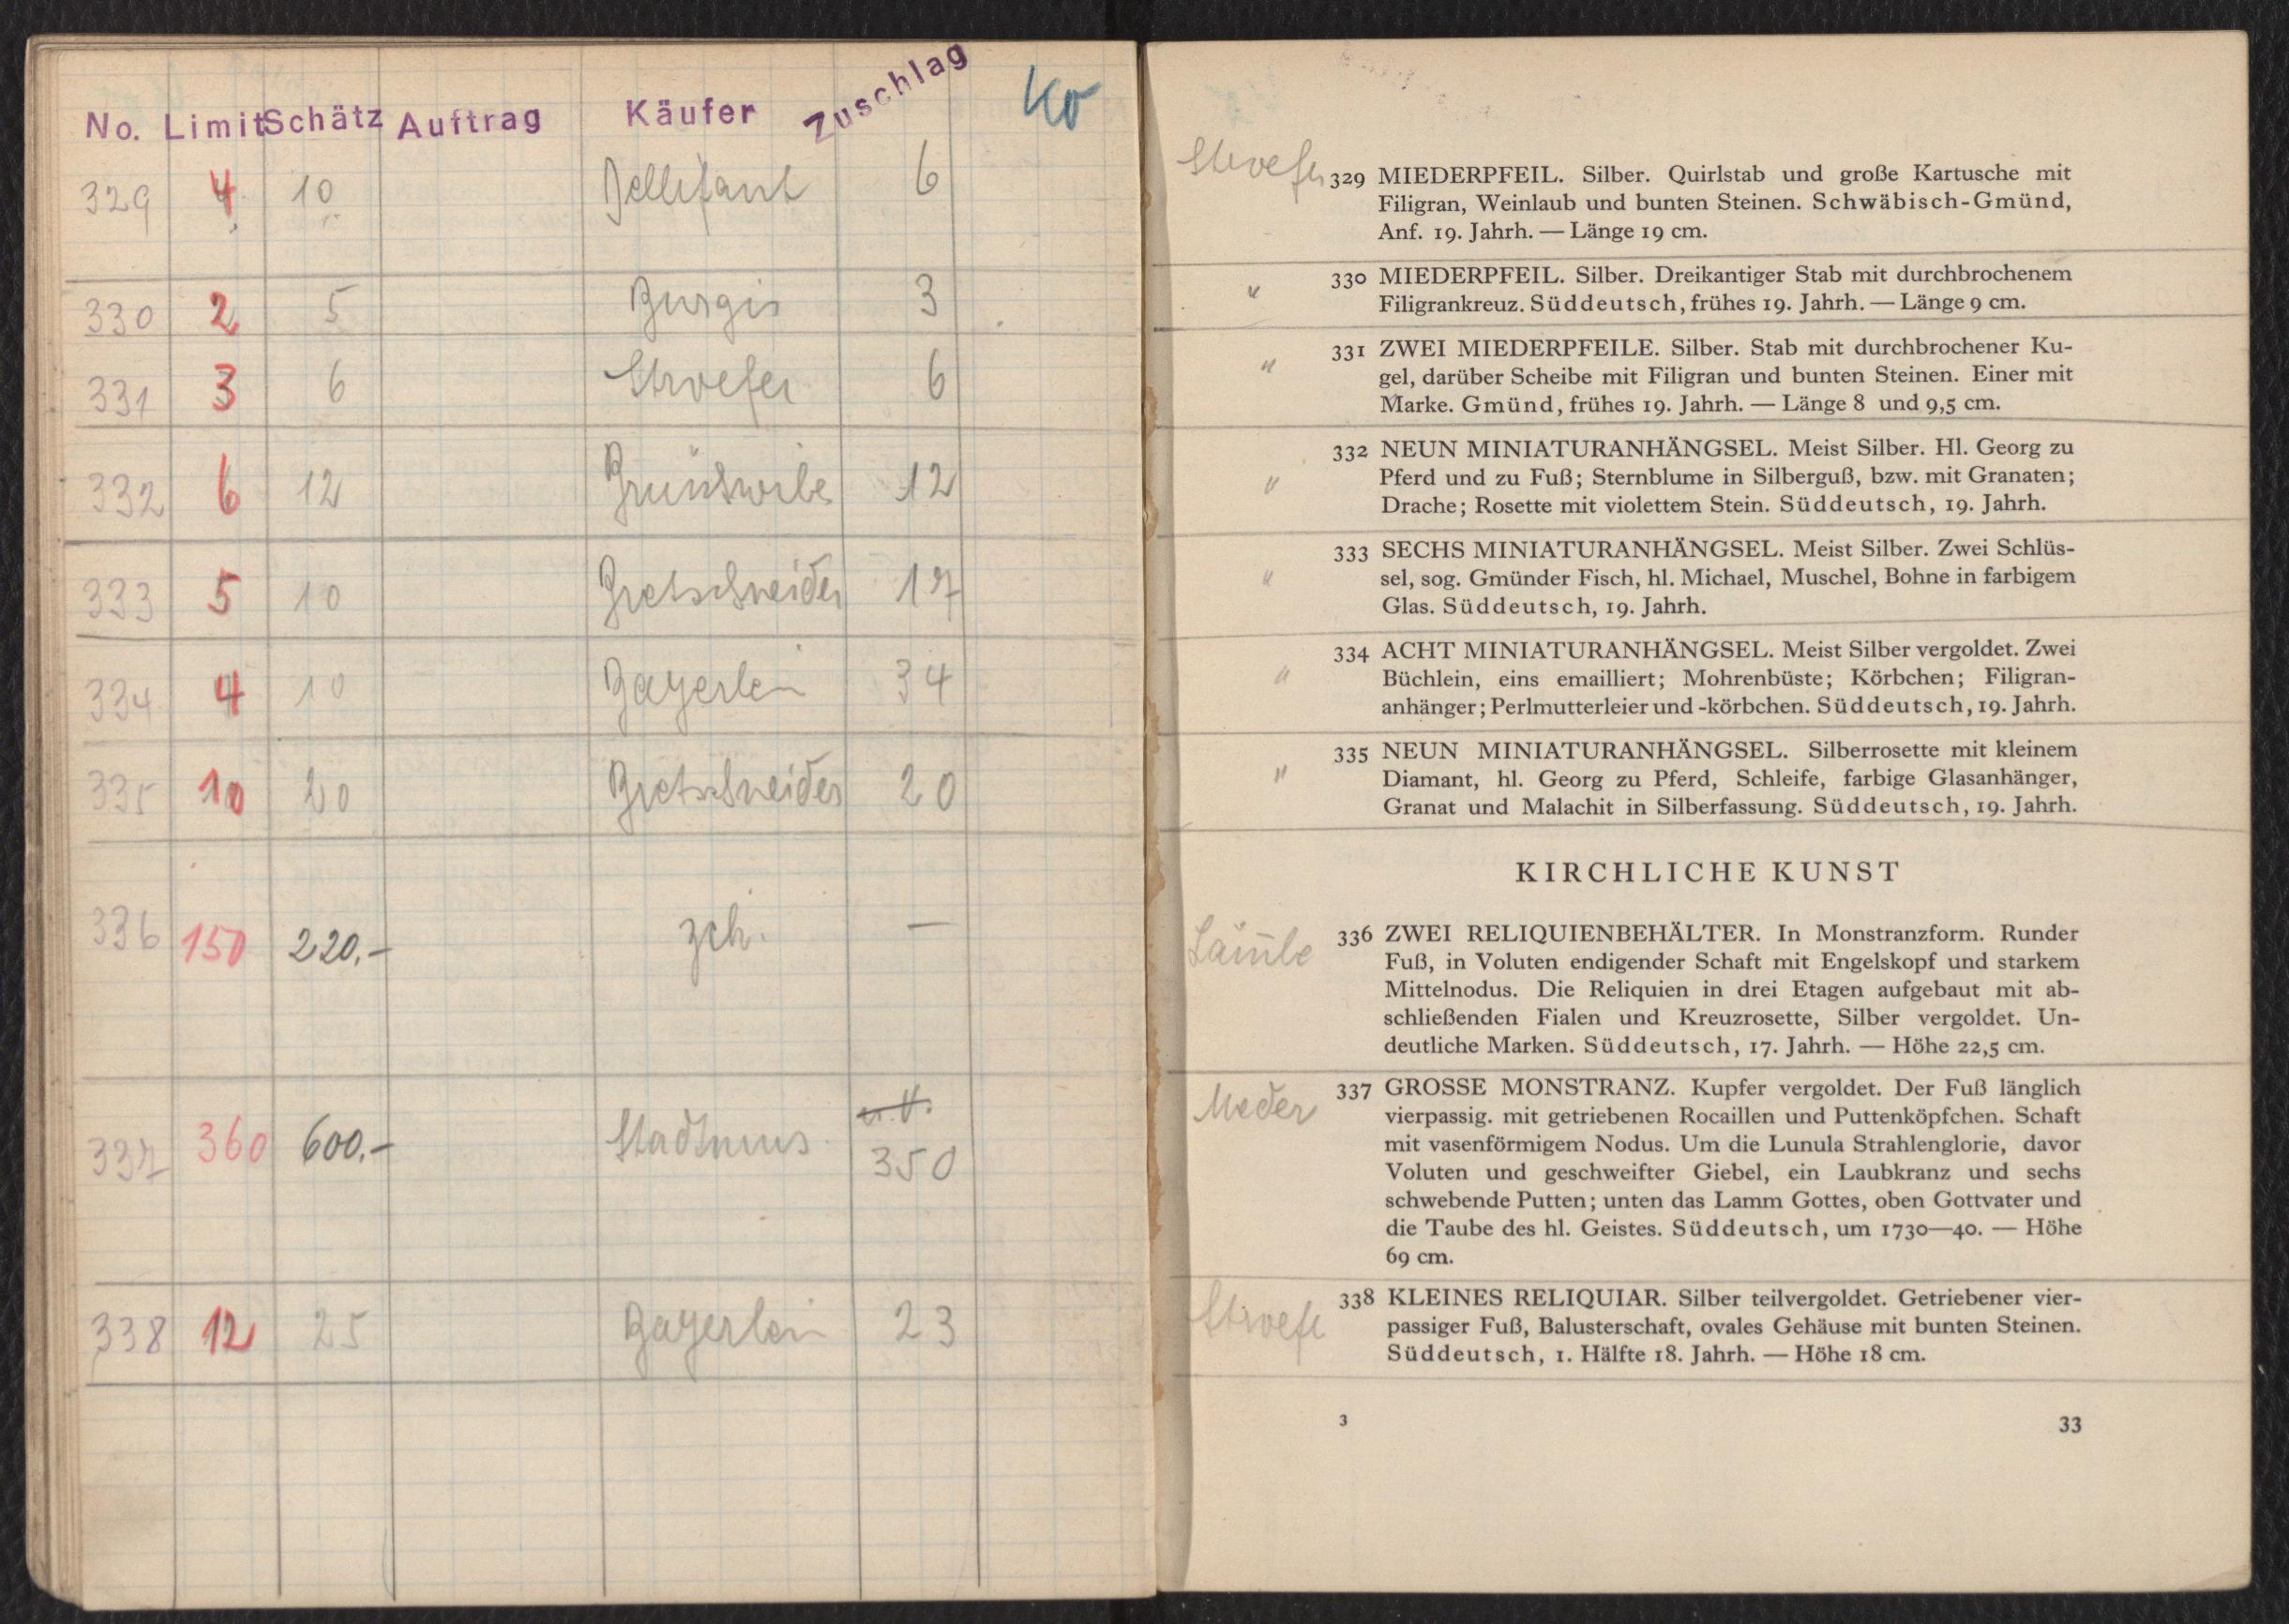 No. Limit Schätz Auftrag Käufer Zuschlag
329 4 10 6
330 2 5 Burgis 3
331 3 6 Stroefer 6
332 6 12 12
333 5 10 Bretschneider 17
334 4 10 Bayerlein 34
335 10 20 Bretschneider 20
336 150 220.- zch. —
337 360 600.- 350
338 12 25 Bayerlein 23
Stroefer
329 MIEDERPFEIL. Silber. Quirlstab und große Kartusche mit
Filigran, Weinlaub und bunten Steinen. Schwäbisch-Gmünd,
Anf. 19. Jahrh. — Länge 19 cm.
" 330 MIEDERPFEIL. Silber. Dreikantiger Stab mit durchbrochenem
Filigrankreuz. Süddeutsch, frühes 19. Jahrh. — Länge 9 cm.
" 331 ZWEI MIEDERPFEILE. Silber. Stab mit durchbrochener Ku-
gel, darüber Scheibe mit Filigran und bunten Steinen. Einer mit
Marke. Gmünd, frühes 19. Jahrh. — Länge 8 und 9,5 cm.
" 332 NEUN MINIATURANHÄNGSEL. Meist Silber. Hl. Georg zu
Pferd und zu Fuß; Sternblume in Silberguß, bzw. mit Granaten;
Drache; Rosette mit violettem Stein. Süddeutsch, 19. Jahrh.
" 333 SECHS MINIATURANHÄNGSEL. Meist Silber. Zwei Schlüs-
sel, sog. Gmünder Fisch, hl. Michael, Muschel, Bohne in farbigem
Glas. Süddeutsch, 19. Jahrh.
" 334 ACHT MINIATURANHÄNGSEL. Meist Silber vergoldet. Zwei
Büchlein, eins emailliert; Mohrenbüste; Körbchen; Filigran-
anhänger; Perlmutterleier und -körbchen. Süddeutsch, 19. Jahrh.
" 335 NEUN MINIATURANHÄNGSEL. Silberrosette mit kleinem
Diamant, hl. Georg zu Pferd, Schleife, farbige Glasanhänger,
Granat und Malachit in Silberfassung. Süddeutsch, 19. Jahrh.
KIRCHLICHE KUNST
336 ZWEI RELIQUIENBEHÄLTER. In Monstranzform. Runder
Fuß, in Voluten endigender Schaft mit Engelskopf und starkem
Mittelnodus. Die Reliquien in drei Etagen aufgebaut mit ab-
schließenden Fialen und Kreuzrosette, Silber vergoldet. Un-
deutliche Marken. Süddeutsch, 17. Jahrh. — Höhe 22,5 cm.
Meder 337 GROSSE MONSTRANZ. Kupfer vergoldet. Der Fuß länglich
vierpassig. mit getriebenen Rocaillen und Puttenköpfchen. Schaft
mit vasenförmigem Nodus. Um die Lunula Strahlenglorie, davor
Voluten und geschweifter Giebel, ein Laubkranz und sechs
schwebende Putten; unten das Lamm Gottes, oben Gottvater und
die Taube des hl. Geistes. Süddeutsch, um 1730—40. — Höhe
69 cm.
Stroefe 338 KLEINES RELIQUIAR. Silber teilvergoldet. Getriebener vier-
passiger Fuß, Balusterschaft, ovales Gehäuse mit bunten Steinen.
Süddeutsch, 1. Hälfte 18. Jahrh. — Höhe 18 cm.
3 33